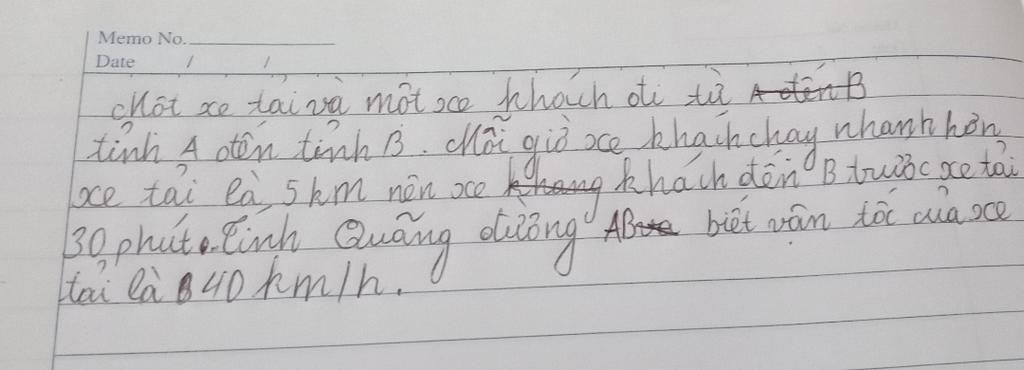 Memo No.
Date / /
Một xe tải và một xe khách đi từ A đến B
tỉnh A đến tỉnh B. Mỗi giờ xe khách chạy nhanh hơn
xe tải là 5 km nên xe khang khách đến B trước xe tải
30 phút. Tính Quãng đường AB biết vận tốc của xe
tải là 40 km/h.